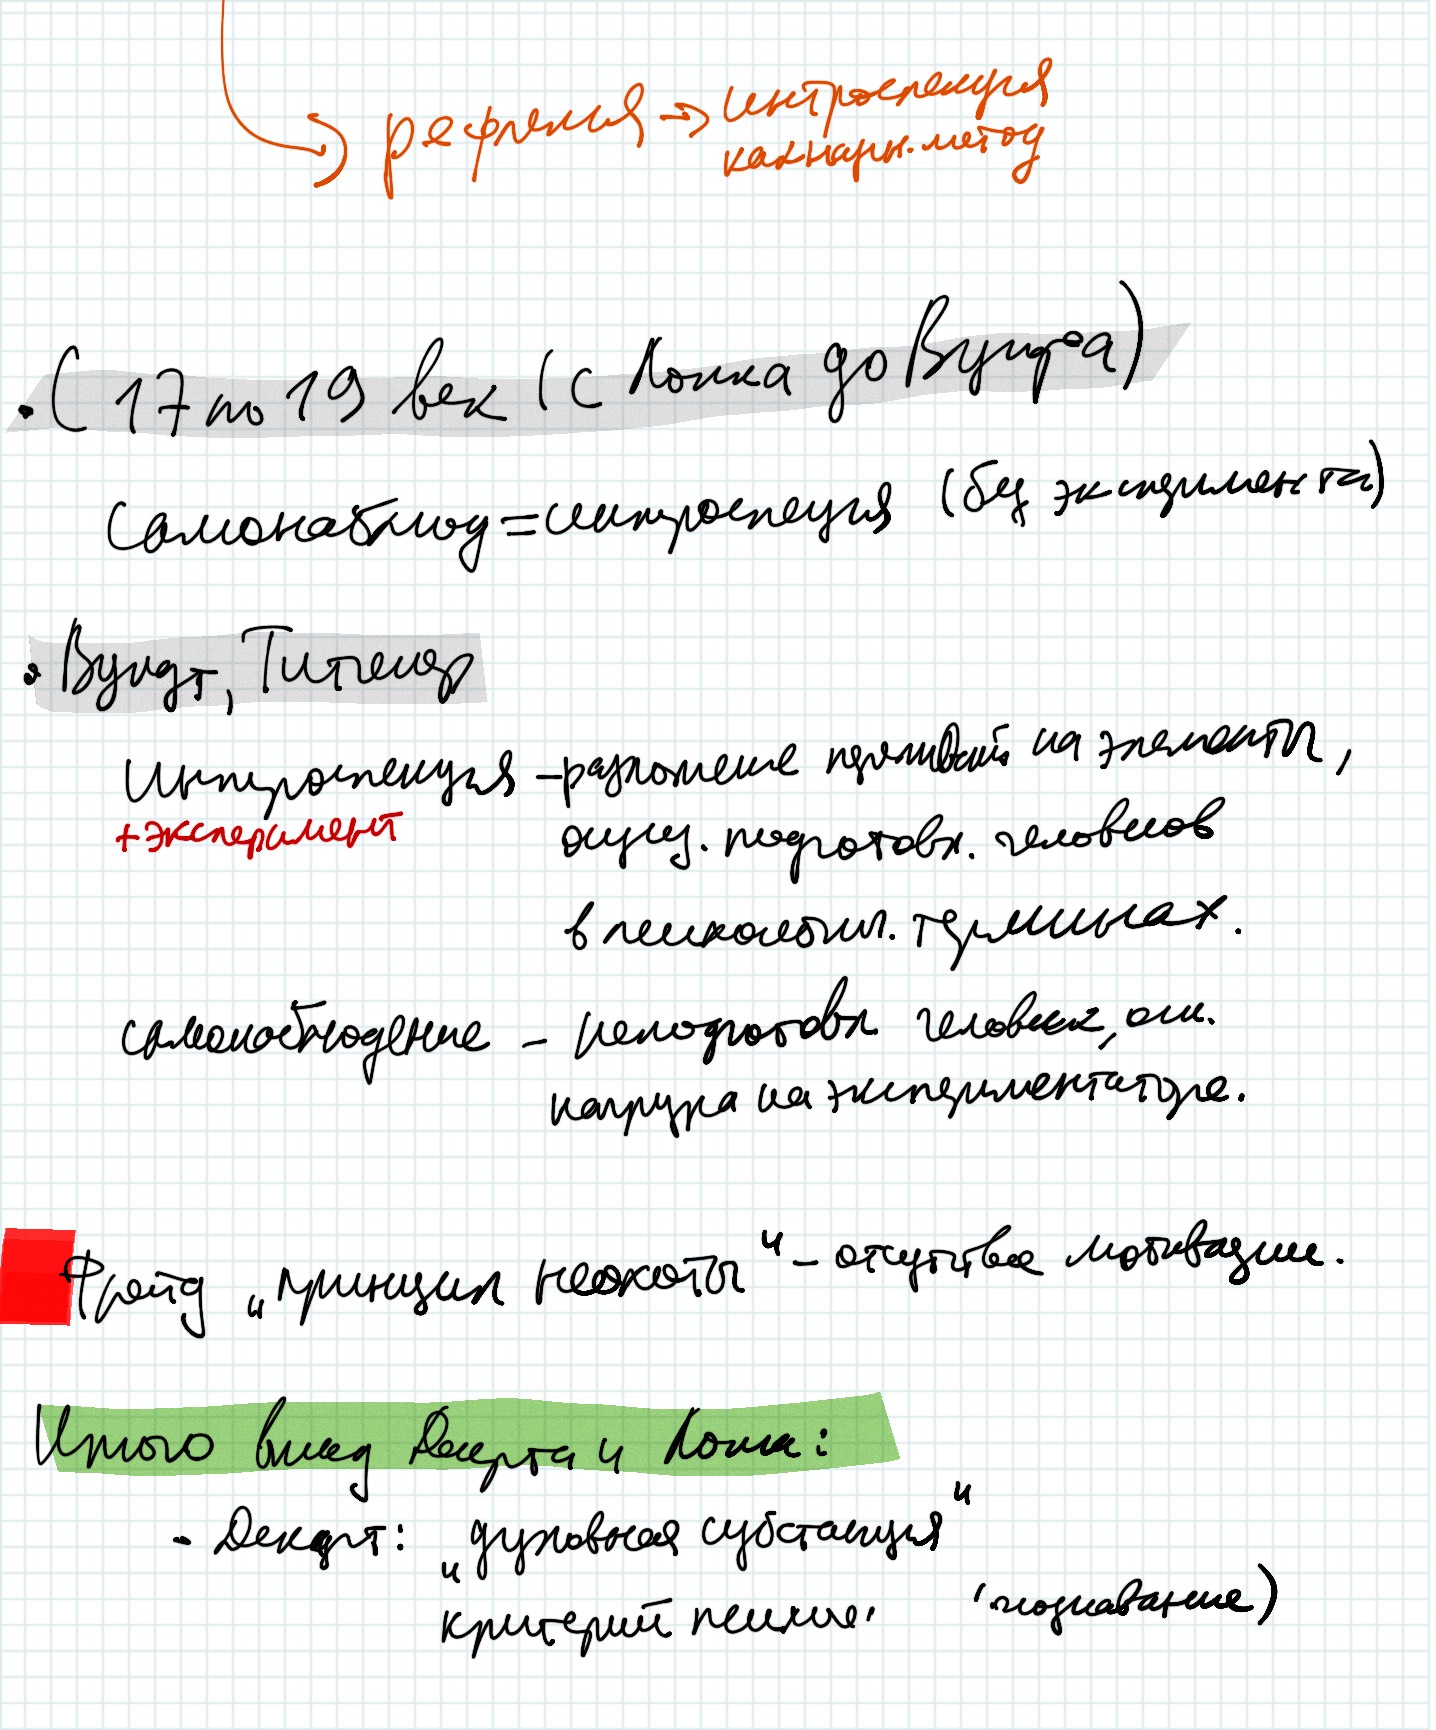 рефлексия → интроспекция
как научн. метод
• С 17 по 19 век (с Локка до Вундта)
Самонаблюд = интроспекция (без эксперимента)
• Вундт, Титченер
Интроспекция – разложение на элементы,
+ эксперимент
ощущ. подготовл. человеков
в психологич. терминах.
самонаблюдение – неподготовл. человек, осн.
нагрузка на экспериментаторе.
Фрейд „принцип неохоты“ – отсутствие мотивации.
Итого вклад Декарта и Локка:
• Декарт: „духовная субстанция“
критерий психич. познавание)